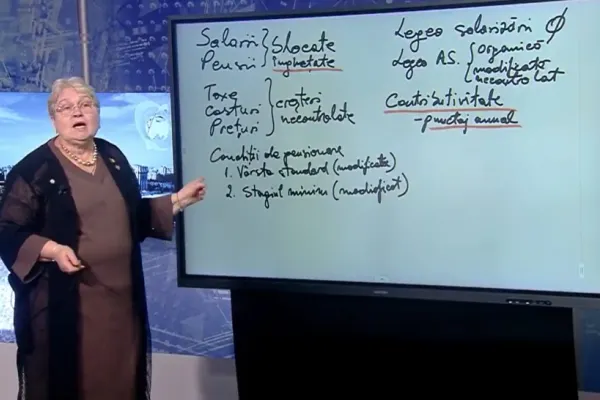 Salarii
Pensii
Blocate
înghețate
Taxe
Costuri
Prețuri
creșteri
necontrolate
Condiții de pensionare
1. Vârsta standard (modificată)
2. Stagiul minim (modificat)
Legea salarizării Ø
Legea AS.
organică
modificată
necontrolat
Contributivitate
- punctaj annual